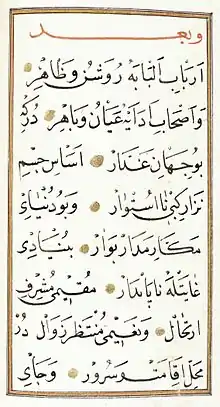 وبعد
ارباب البابه روشن وظاهر
واصحاب اذانه عيان وباهر دركه
بو جهان غدار اساس جسم
نزار كبى نااستوار وبو دنياى
مكار مدار بوار بنيادى
غائله ناپايدار مقيمى مشرف
ارتحال ونعيمى منتظر زوال در
محل اقامت وسرور وجاى